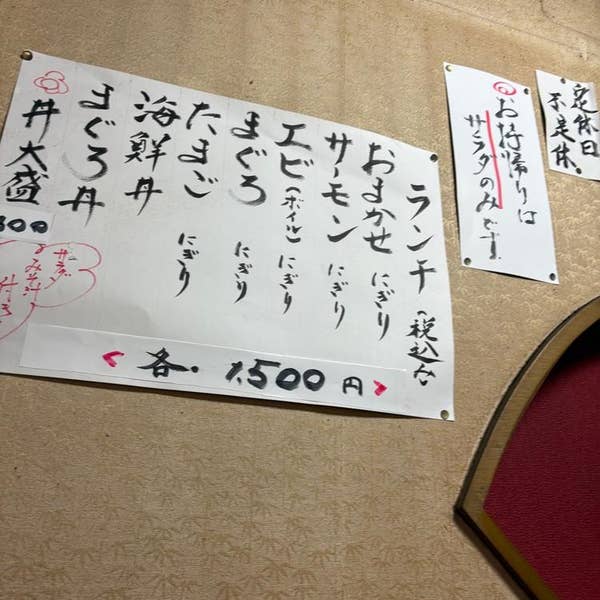 定休日
不定休。
お持帰りは
サラダのみです。
ランチ(税込み)
おまかせ にぎり
サーモン にぎり
エビ(ボイル) にぎり
まぐろ にぎり
たまご にぎり
海鮮丼
まぐろ丼
丼大盛
各. 1,500円
サラダ
みそ汁